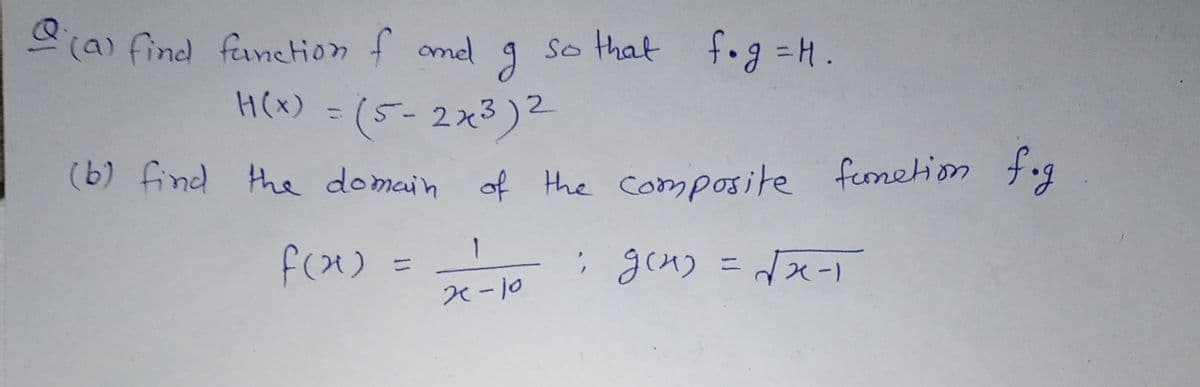 Q. (a) find function f and g so that f∘g = H.
H(x) = (5 - 2x³)²
(b) find the domain of the composite function f∘g
f(x) = 1/(x-10) ; g(x) = √(x-1)